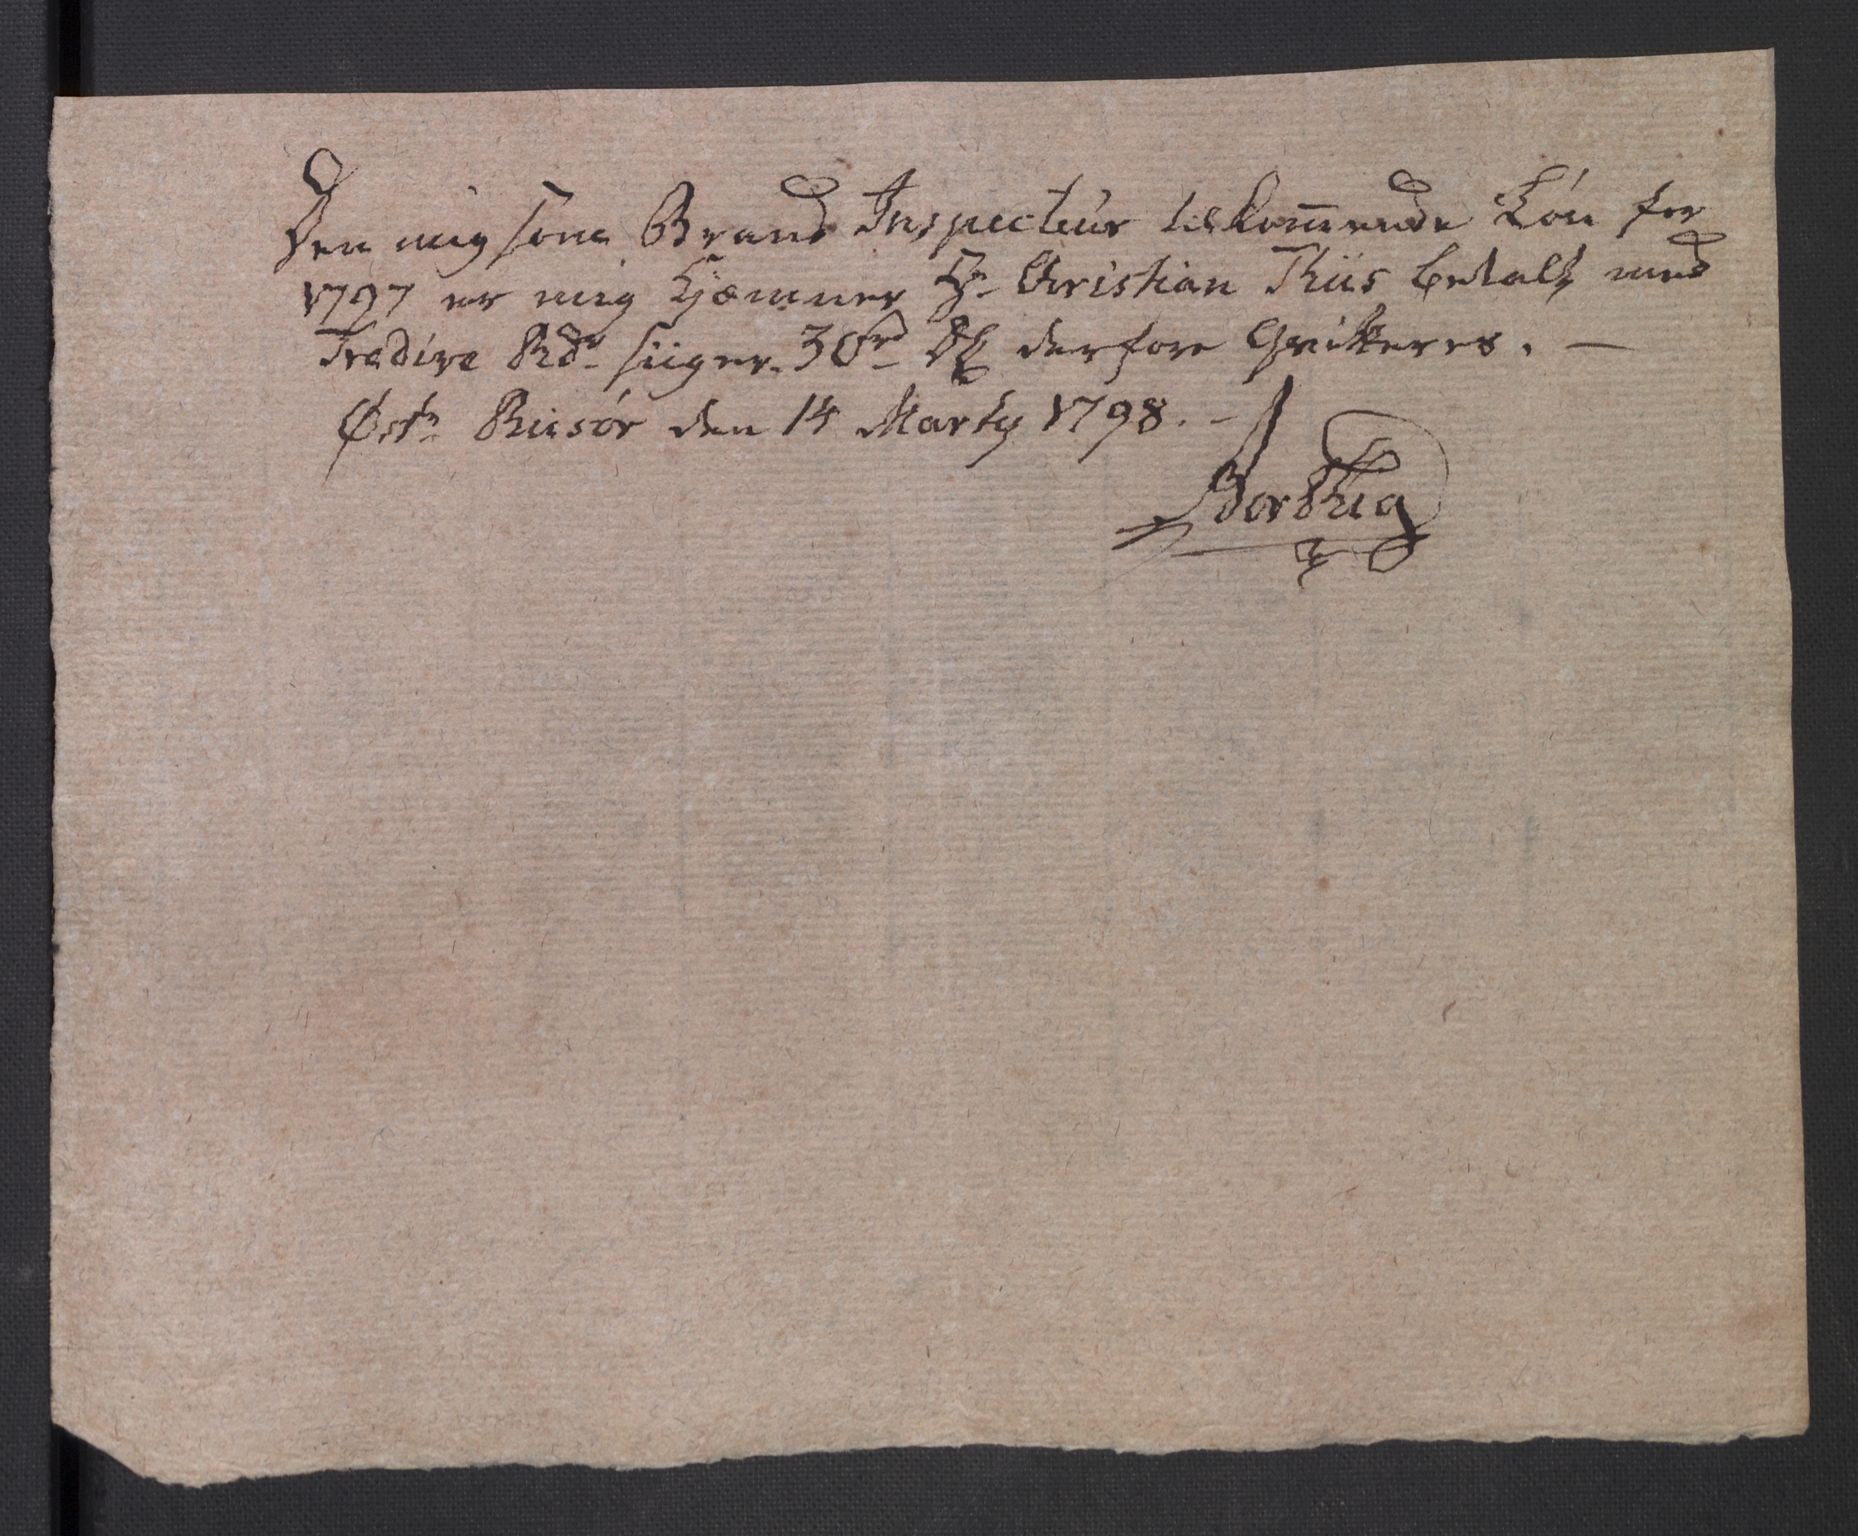 Den mig som Brand Inspecteur tilkommende Løn for
1797 er mig Kjæmner Hr Christian Thiis betalt med
Tredive Rdr siiger 30rd derfore Qvitteres. —
Østr Riisør den 14 Marty 1798. —